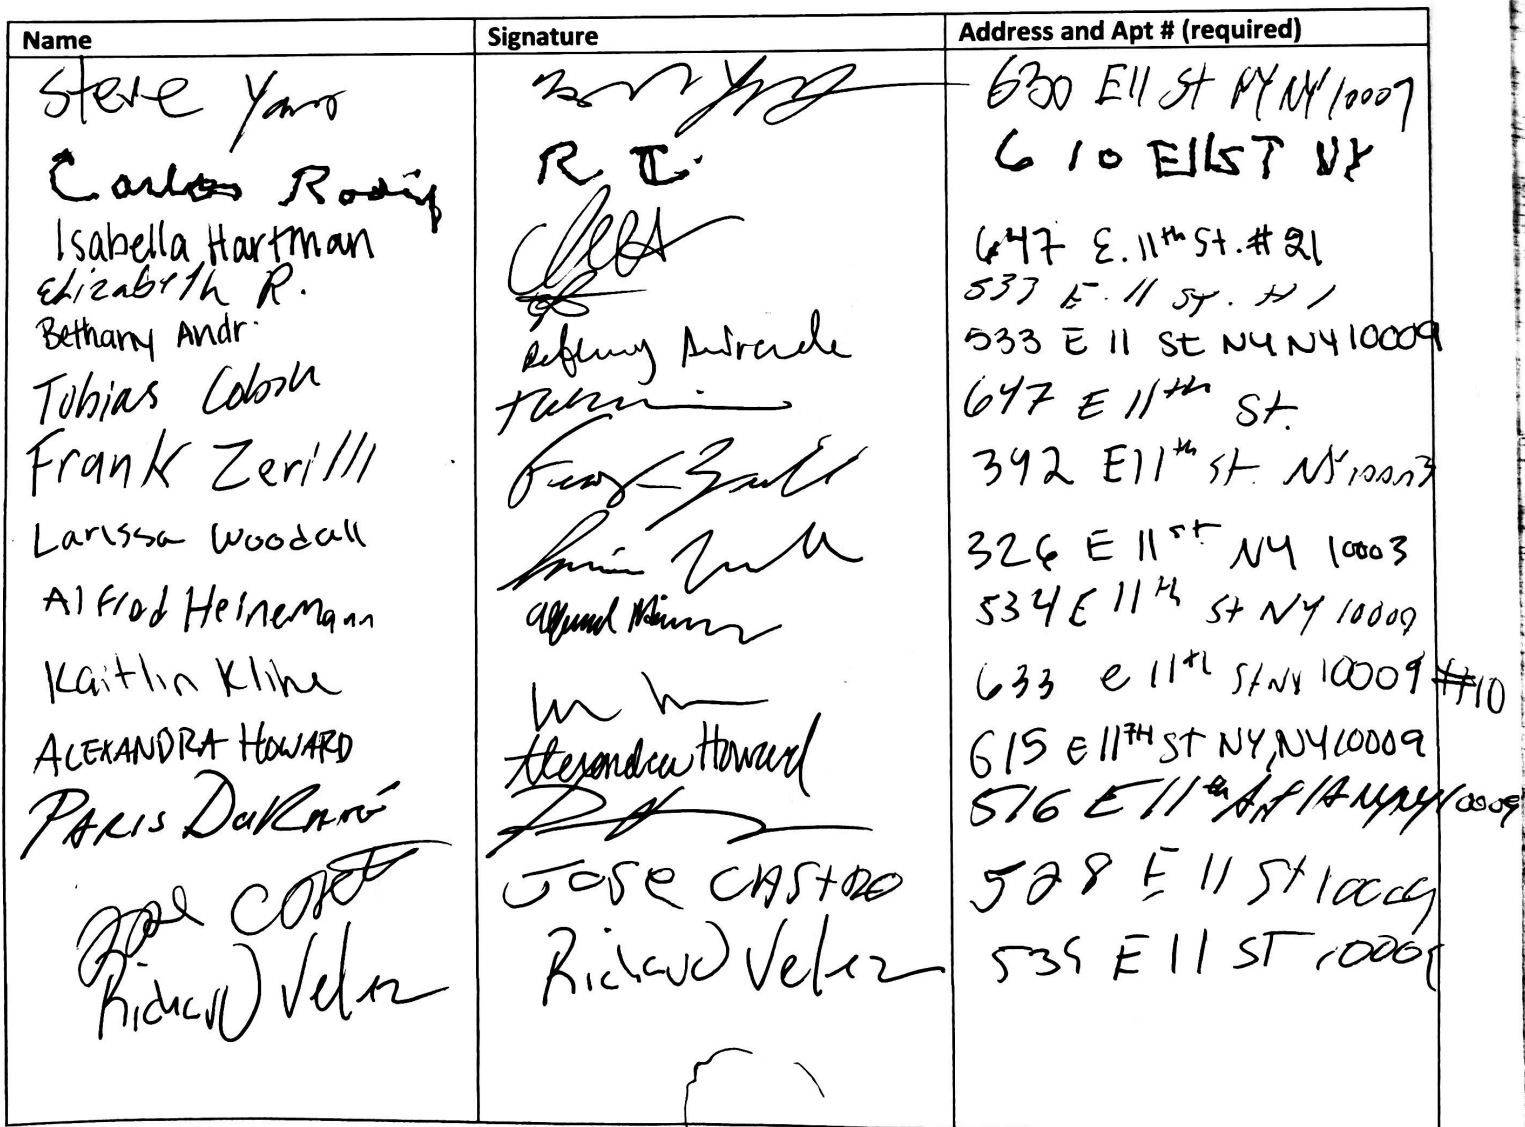 Name Signature Address and Apt # (required)
Steve 630 E11 St NY NY 10009
Carlos R I. 610 E11ST NY
Isabella Hartman 647 E. 11th St. #21
Elizabeth R. 533 E. 11 ST. #1
Bethany Andr. Bethany Andrade 533 E 11 St NY NY 10009
Tobias 647 E 11th St.
Frank Zerilli 392 E11th St. NY 10003
Larissa Woodall 326 E 11st NY 10003
Alfred Heinemann 534 E 11th St NY 10009
Kaitlin Kline 633 e 11th St NY 10009 #10
ALEXANDRA HOWARD Alexandra Howard 615 E 11TH St NY, NY 10009
PARIS 516 E 11th Apt 1A NY, NY 10009
Jose CASTRO 528 E 11 St 10009
Richard Velez Richard Velez 535 E 11 ST 10009